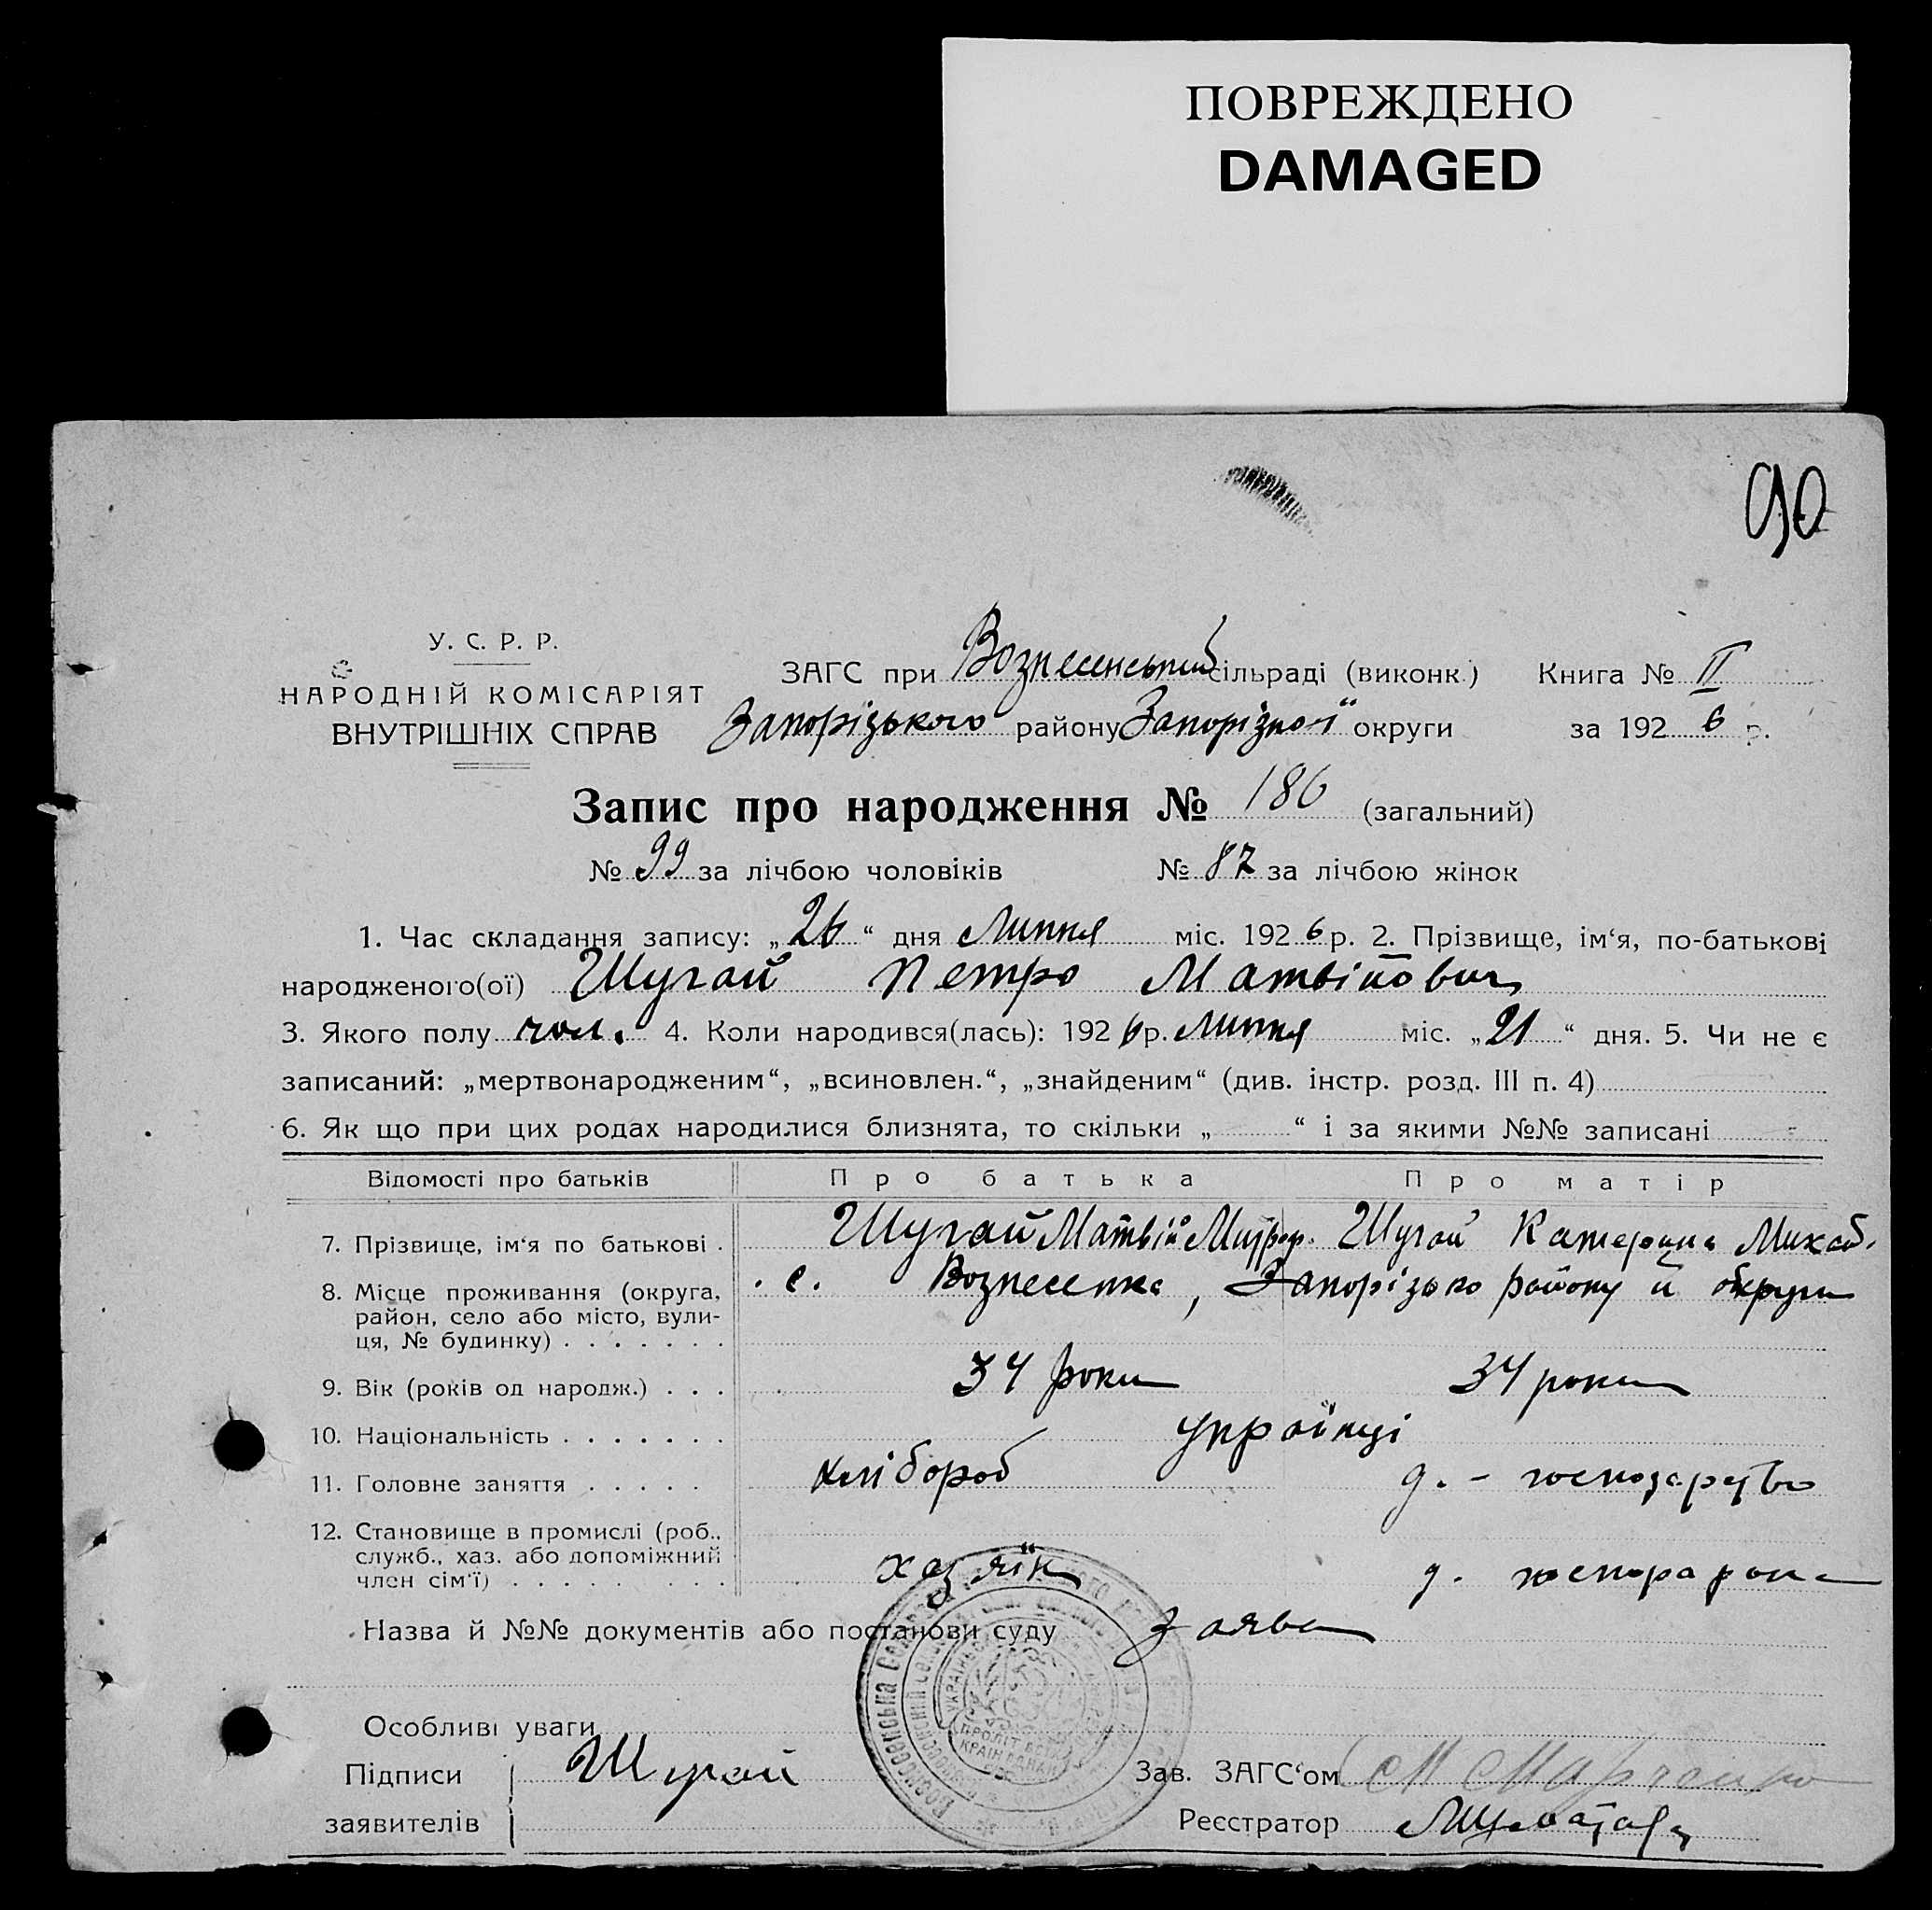 ПОВРЕЖДЕНО
DAMAGED
90
У. С. Р. Р.
НАРОДНІЙ КОМІСАРІЯТ
ВНУТРІШНІХ СПРАВ
ЗАГС при Вознесенський сільраді (виконк.) Книга № II
Запорізького району Запорізької округи за 1926 р.
Запис про народження № 186 (загальний)
№ 99 за лічбою чоловіків № 87 за лічбою жінок
1. Час складання запису: „26“ дня Липня міс. 1926 р. 2. Прізвище, ім‘я, по-батькові
народженого(ої) Шугай Петро Матвійович
3. Якого полу чол. 4. Коли народився(лась): 1926 р. Липня міс. „21“ дня. 5. Чи не є
записаний: „мертвонародженим“, „всиновлен.“, „знайденим“ (див. інстр. розд. III п. 4)
6. Як що при цих родах народилися близнята, то скільки „ “ і за якими №№ записані -
Відомості про батьків Про батька Про матір
7. Прізвище, ім‘я по батькові . Шугай Матвій Митроф. Шугай Катерина
8. Місце проживання (округа, район, село або місто, вулиця, № будинку) . . . . . . . с. Вознесенка, Запорізько району й округи
9. Вік (років од народж.) . . . 34 роки 34 роки
10. Національність . . . . . . . українці
11. Головне заняття . . . . . хлібороб д. - господарство
12. Становище в промислі (роб., служб., хаз. або допоміжний член сім‘ї) . . . . . . . . хазяїн д.
Назва й №№ документів або постанови суду заява
Особливі уваги
Підписи Шугай Зав. ЗАГС‘ом
заявителів Реєстратор